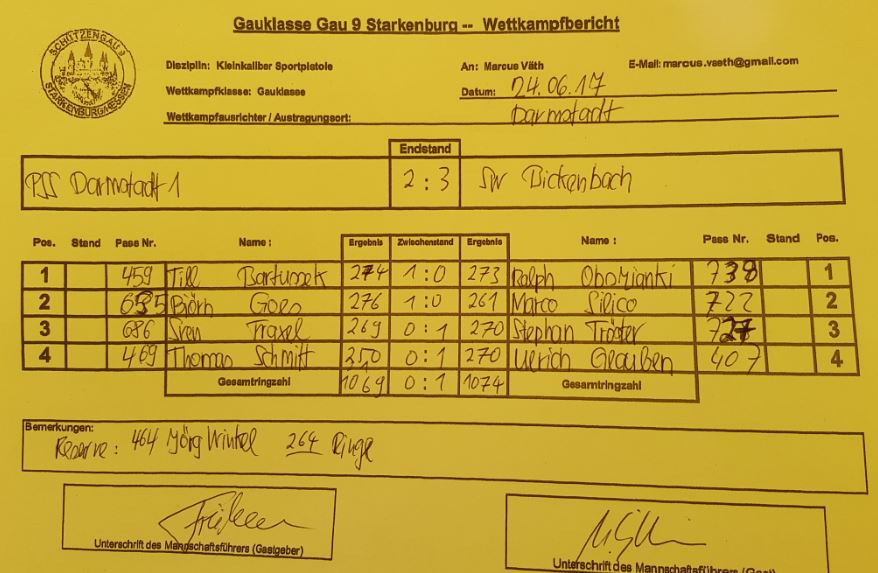 Gauklasse Gau 9 Starkenburg -- Wettkampfbericht
SCHÜTZENGAU 9
STARKENBURG/HESSEN
Disziplin: Kleinkaliber Sportpistole An: Marcus Väth E-Mail: marcus.vaeth@gmail.com
Wettkampfklasse: Gauklasse Datum: 24.06.17
Wettkampfausrichter / Austragungsort: Darmstadt
Endstand
PSS Darmstadt 1 2 : 3 SV Bickenbach
Pos. Stand Pass Nr. Name : Ergebnis Zwischenstand Ergebnis Name : Pass Nr. Stand Pos.
1 459 Till Bartussek 274 1 : 0 273 Ralph 738 1
2 Björn Goes 276 1 : 0 261 Marco Silico 722 2
3 686 Traxel 269 0 : 1 270 Stephan Tröster 3
4 469 Thomas Schmitt 250 0 : 1 270 Ulrich Glauben 407 4
Gesamtringzahl 1069 0 : 1 1074 Gesamtringzahl
Bemerkungen:
Reserve : 464 Jörg Winkel 264 Ringe
Unterschrift des Mannschaftsführers (Gastgeber)
Unterschrift des Mannschaftsführers (Gast)